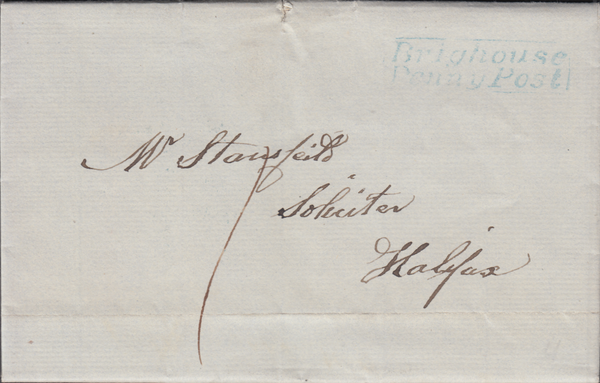 Brighouse
Penny Post
Mr Stansfeild
Soliciter
Halifax